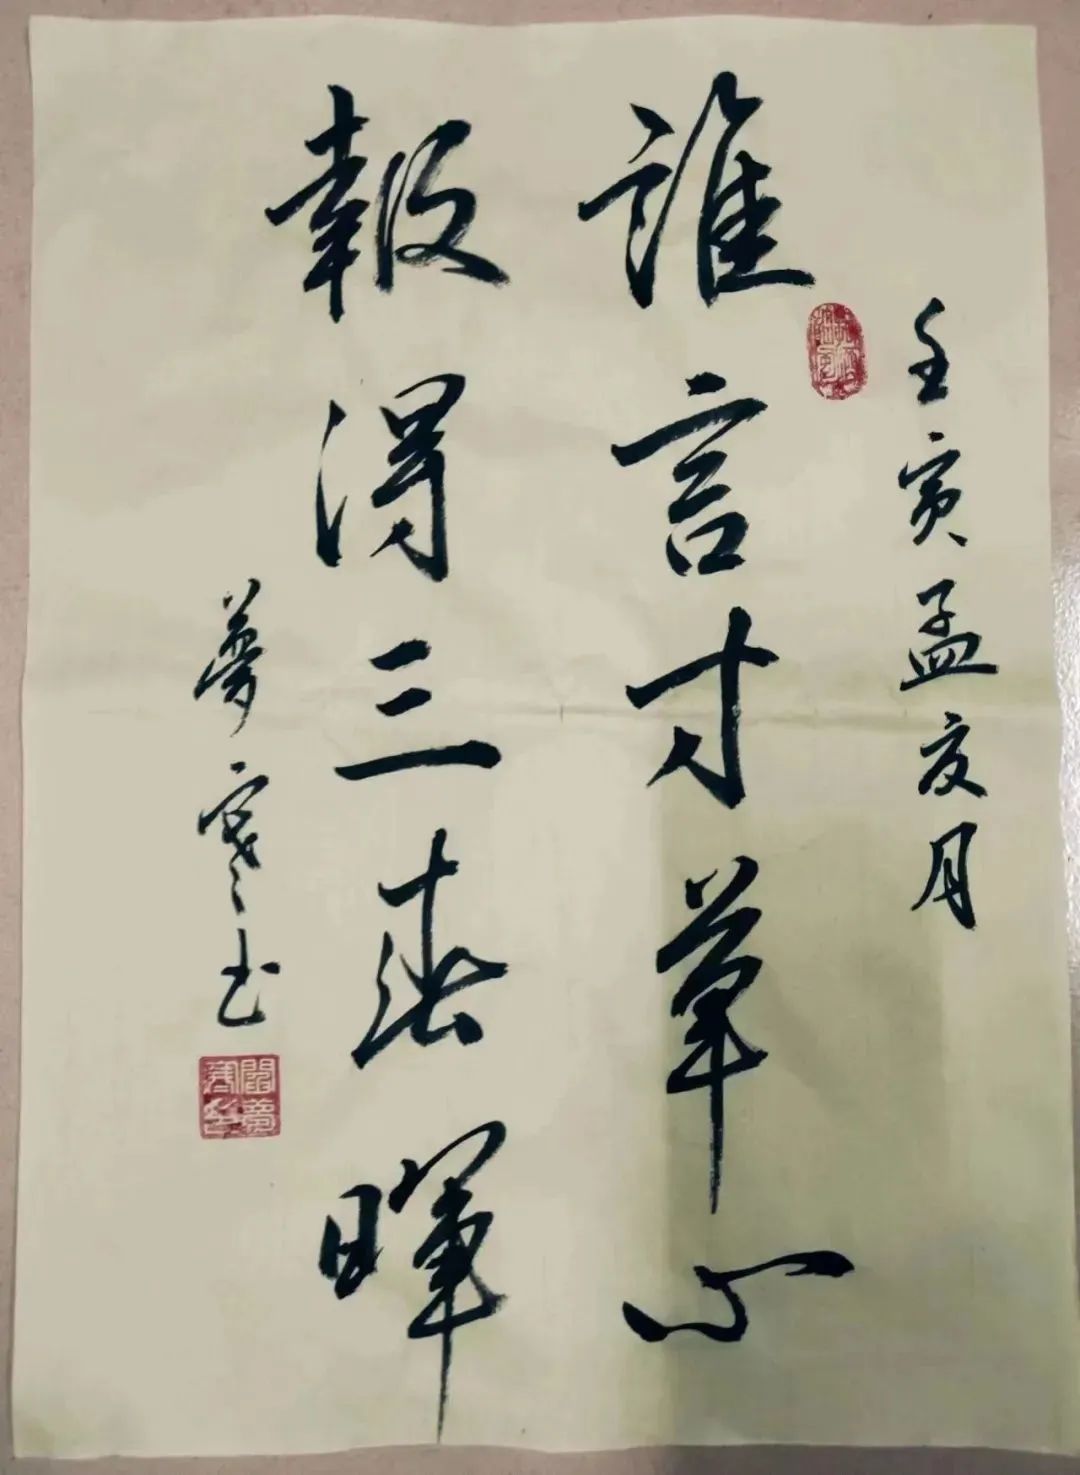 壬寅孟夏月
誰言寸草心
報得三春暉
夢寒书